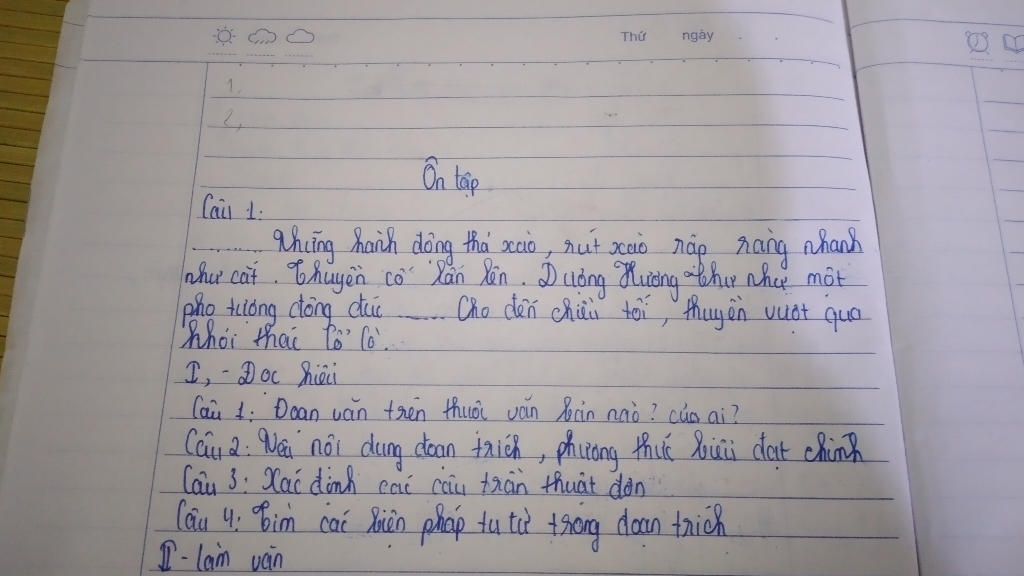 Thứ ngày . .
1,
2,
Ôn tập
Câu 1:
......... Những hành động thả xào, rút xào rập ràng nhanh
như cắt. Thuyền cố lấn lên. Dượng Hương Thư như một
pho tượng đồng đúc ...... Cho đến chiều tối, thuyền vượt qua
khỏi thác Cổ Cò.
I, - Đọc hiểu
Câu 1: Đoạn văn trên thuộc văn bản nào? của ai?
Câu 2: Nêu nội dung đoạn trích, phương thức biểu đạt chính
Câu 3: Xác định các câu trần thuật đơn
Câu 4: Tìm các biện pháp tu từ trong đoạn trích
II - làm văn